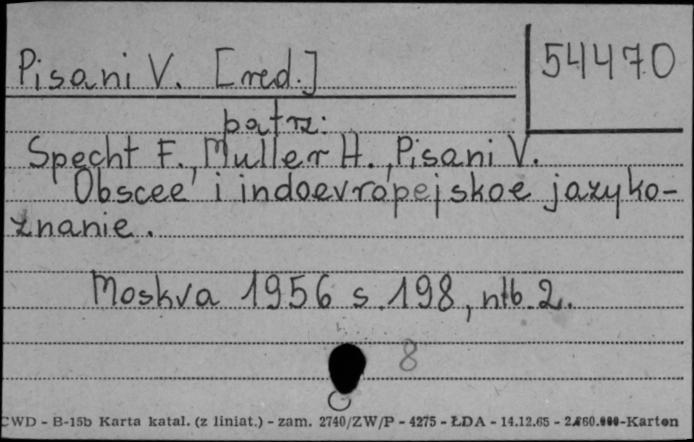 Pisani V. [red.]
54470
patrz:
Specht F., Muller H., Pisani V.
Obscee i indoevropejskoe jazyko-
znanie.
Moskva 1956 s. 198, nlb. 2.
8
CWD - B-15b Karta katal. (z liniat.) - zam. 2740/ZW/P - 4275 - ŁDA - 14.12.65 -